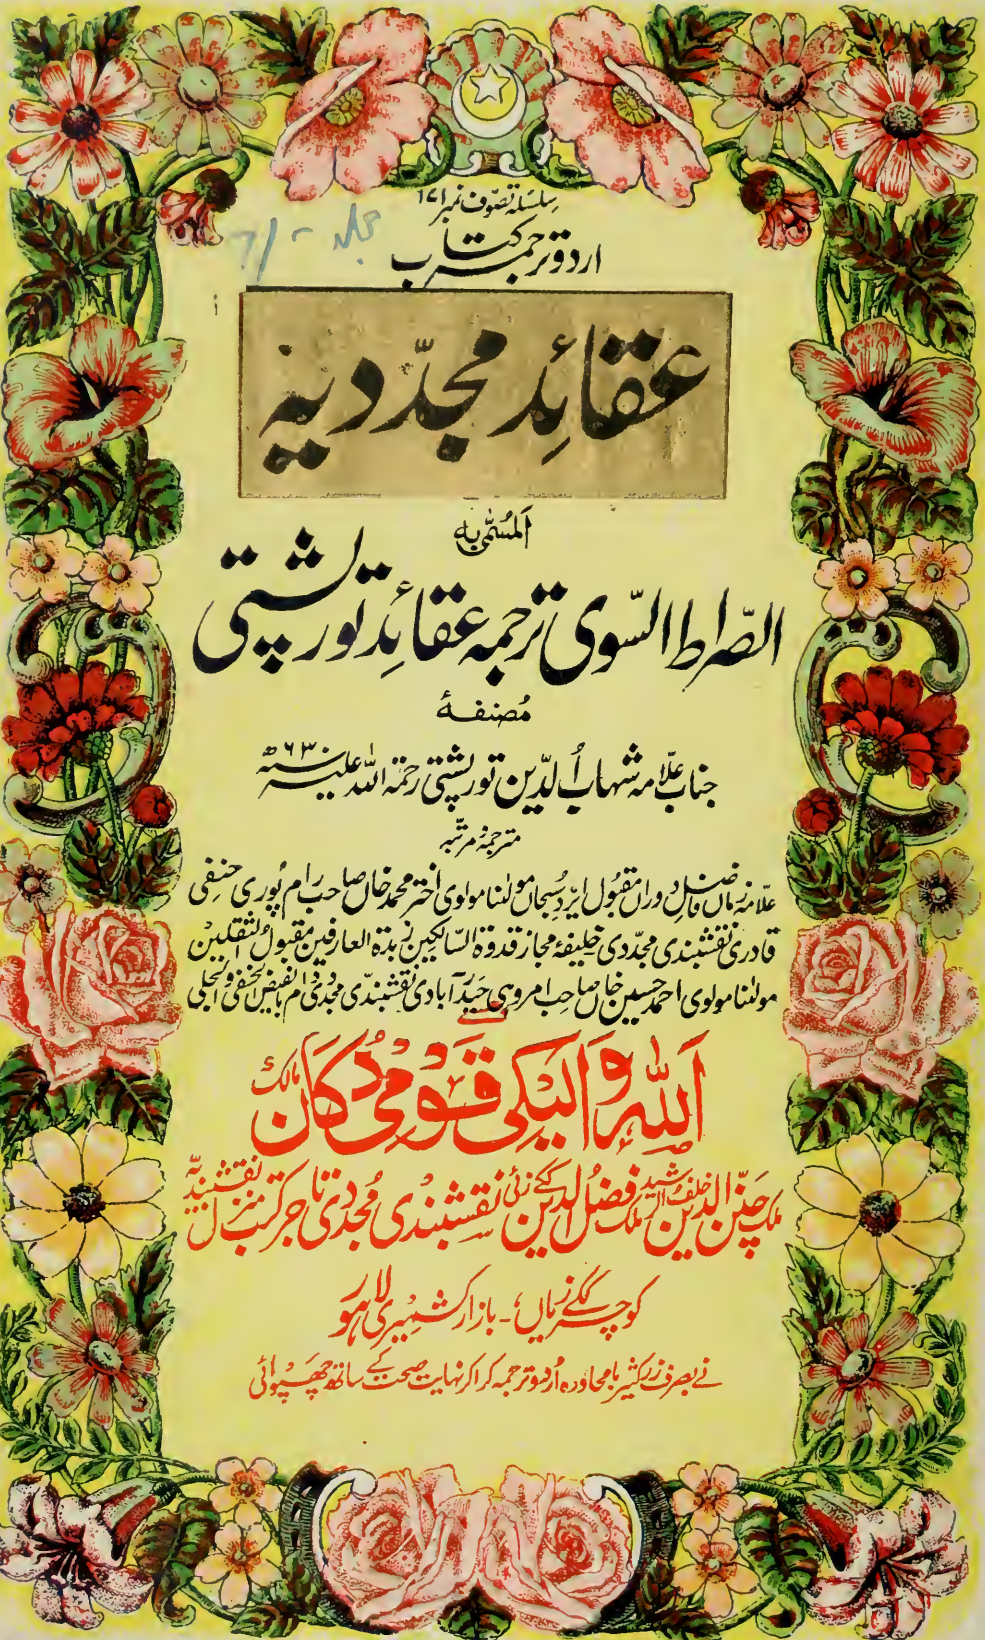 سلسلہ تصوّف نمبر ۱۷۱
اردو ترجمہ کتاب
عقائد مجدّدیہ
اَلمُسمّٰی بہ
الصّراط السّوی ترجمہ عقائد تورپشتی
مُصنفۂ
جناب علّامہ شہاب اُلدّین تورپشتی رحمۃ اللہ علیہ سنہ ۶۳۰ھ
مترجمۂ و مرتّبہ
علّامہ زماں فاضل دوراں مقبول ایزد سبحاں مولٰنا مولوی اختر محمد خاں صاحب رام پُوری حنفی
قادری نقشبندی مجدّدی خلیفۂ مجاز قدوۃ السّالکین زبدۃ العارفین مقبول الثقلین
مولٰنا مولوی احمد حسین خاں صاحب امروہی حیدرآبادی نقشبندی مجدّدی دام بالفیض الخفی والجلی
سے
اَللہ وَالیکی قَومی دُکَان
مالک
ملک چنن الدین خلف الرشید ملک فضل الدین ککے زئی نقشبندی مُجدّدی تاجر کتب منزل نقشبندیّہ
کوچہ ککے زیاں، بازار کشمیری لاہور
نے بصرف زر کثیر بامحاورہ اُردو ترجمہ کرا کر نہایت صحت کے ساتھ چَھپوائی